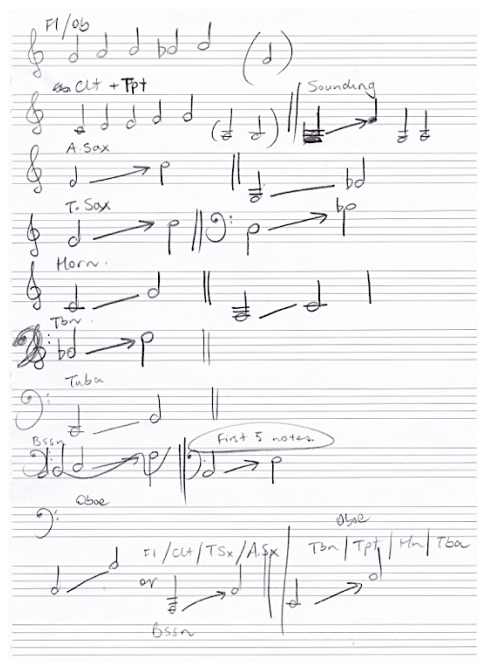 Fl/Ob
Clt + Tpt Sounding
A.Sax
T.Sax
Horn.
Tbn.
Tuba
Bssn First 5 notes.
Oboe
Fl/Clt/TSx/A.Sx Oboe
or Tbn/Tpt/Hn/Tba
Bssn